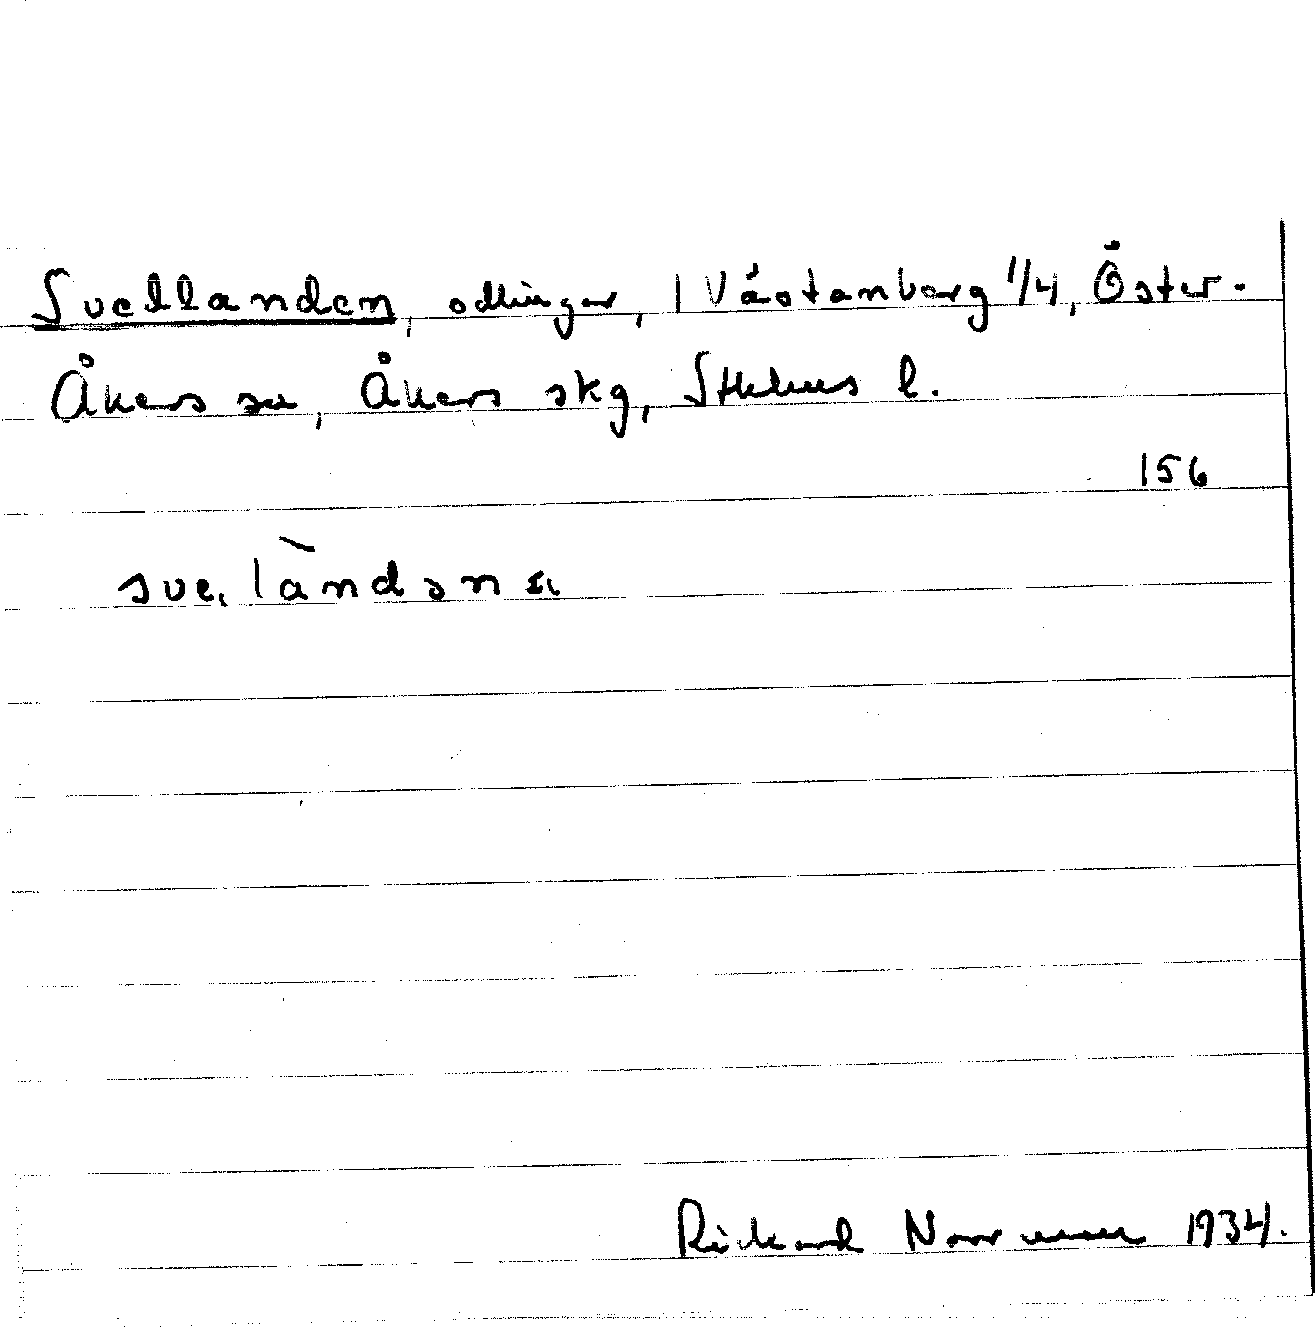 Svellanden, odlingar, 1 Västanberg 1/4, Öster-
Åkers sn, Åkers skg, Sthlms l.
156
sve, làndəna
Rickard Norrman 1934.